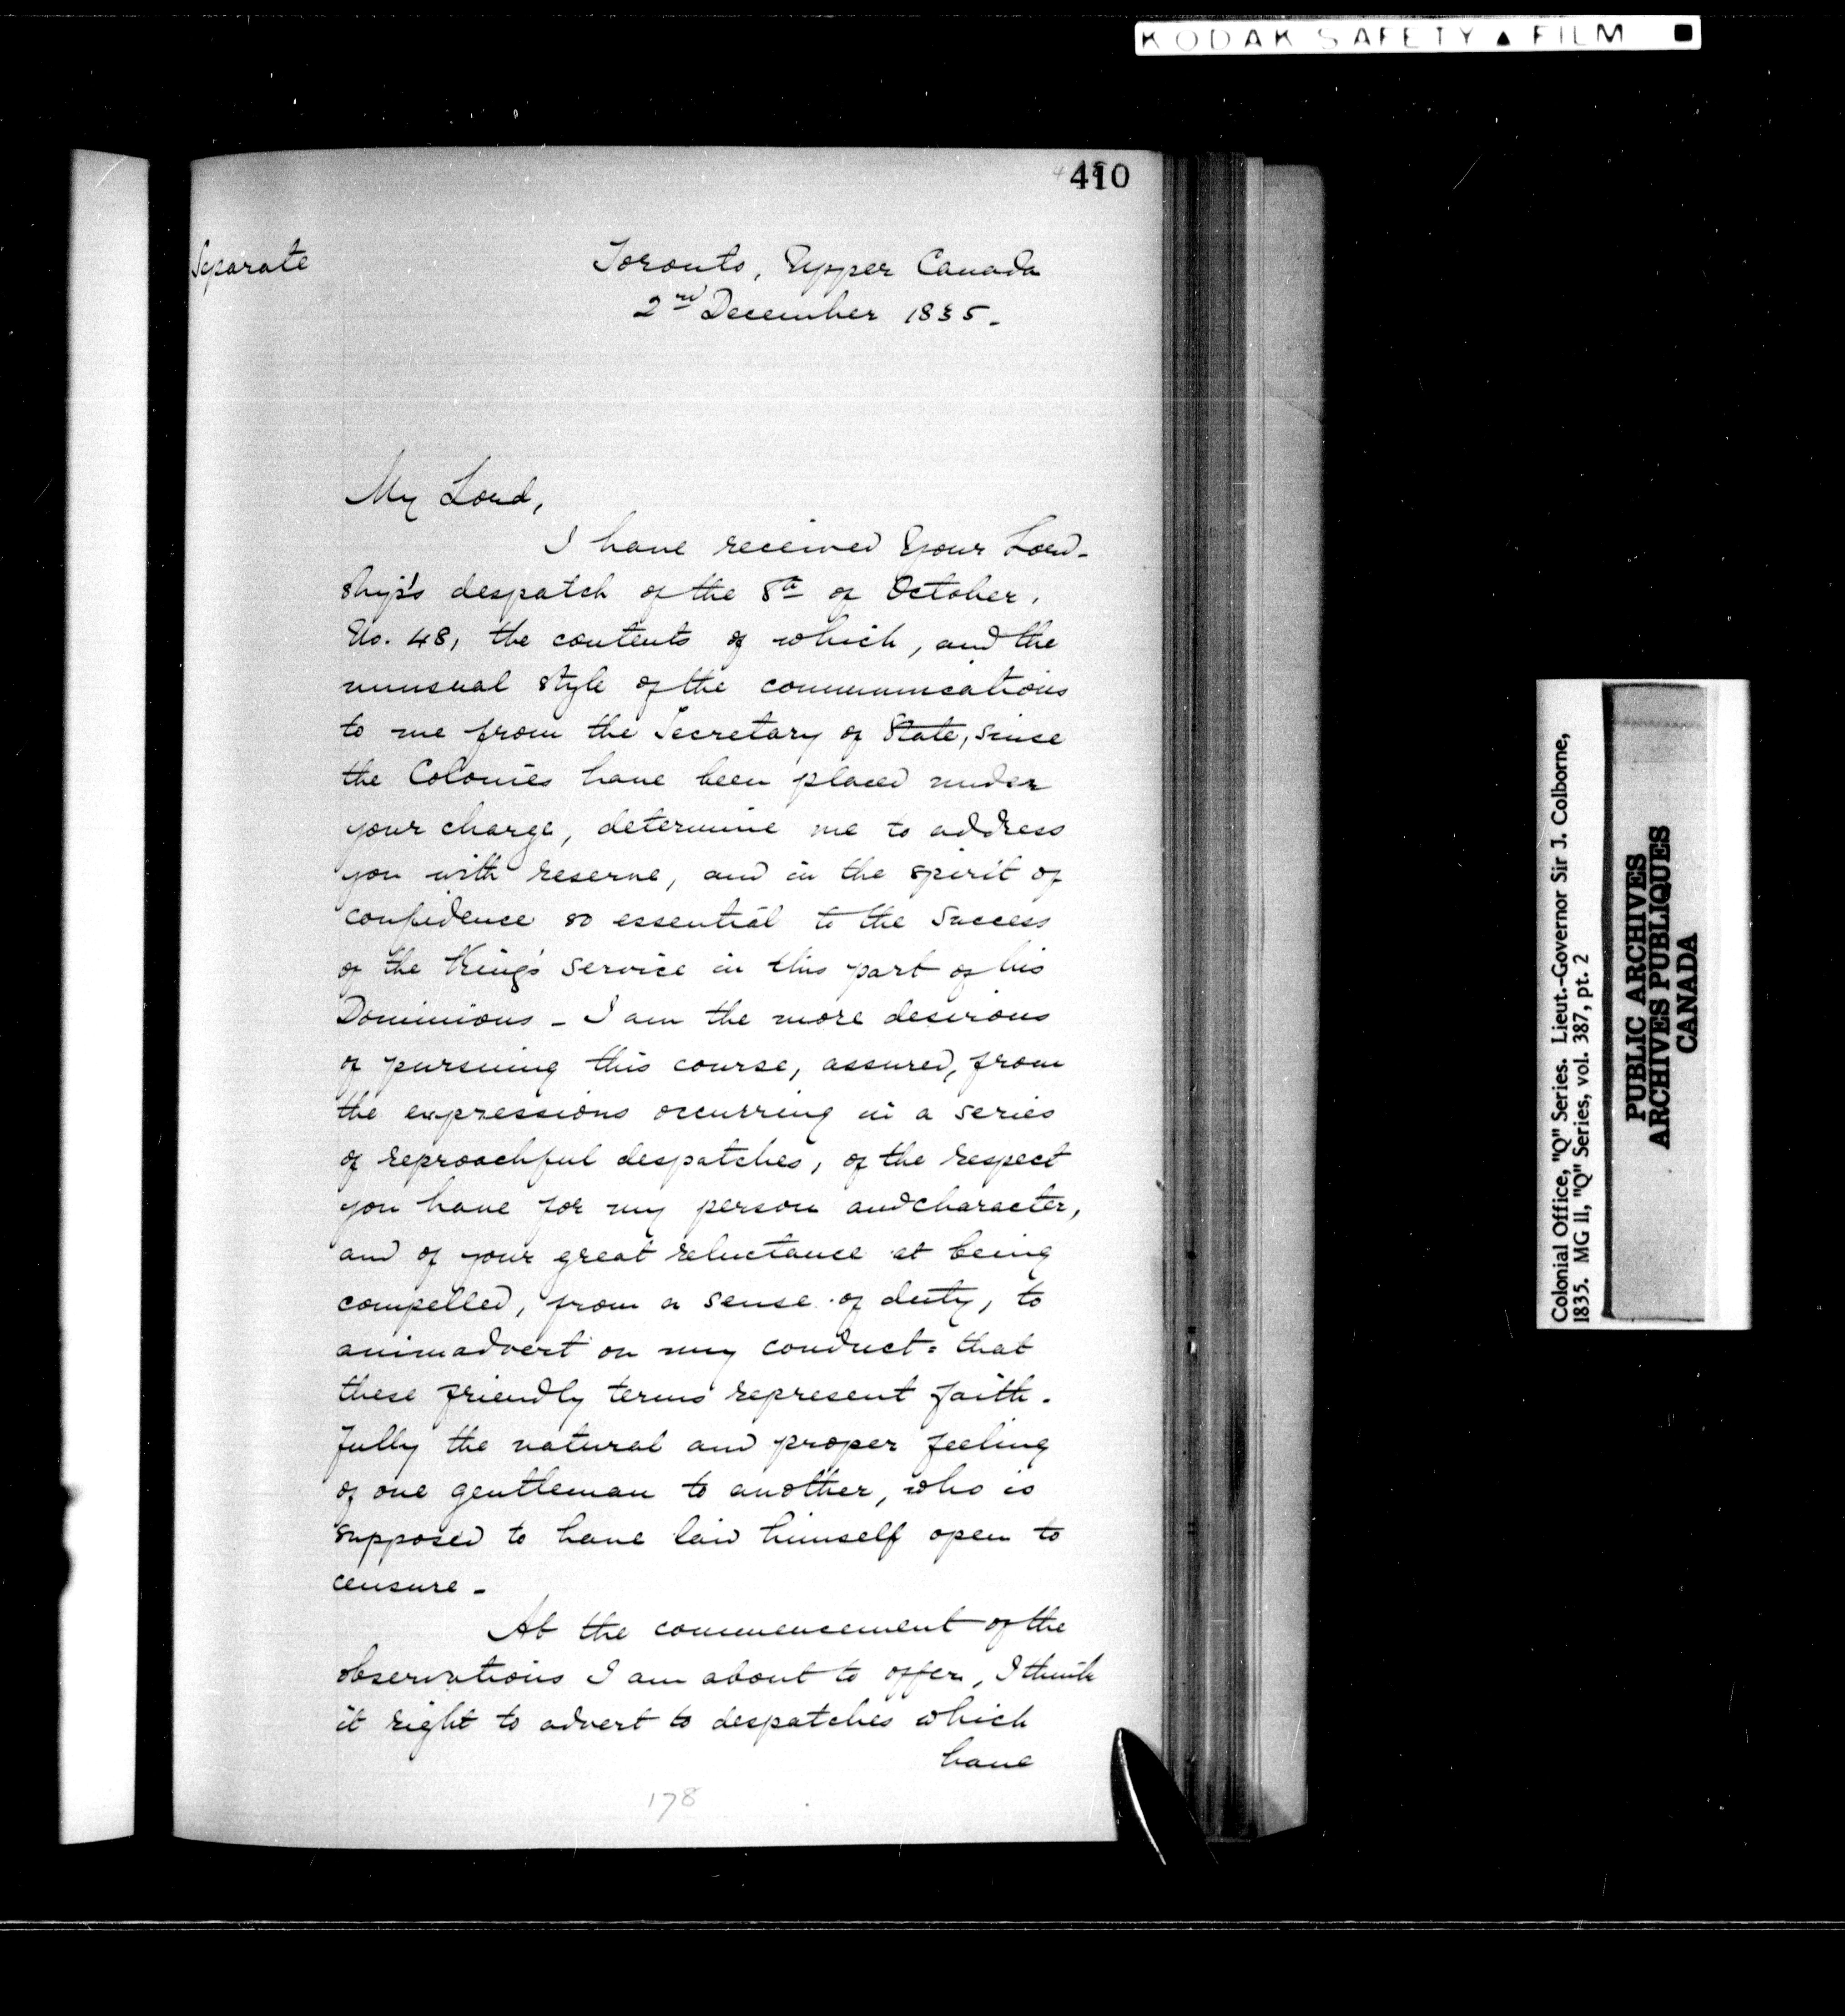 KODAK SAFETY ▲ FILM ■
410
Separate
Toronto, Upper Canada
2nd December 1835.
My Lord,
I have received Your Lord-
ship's despatch of the 8th of October,
No. 48, the contents of which, and the
unusual style of the communications
to me from the Secretary of State, since
the Colonies have been placed under
your charge, determine me to address
you with reserve, and in the spirit of
confidence so essential to the success
of the King's service in this part of his
Dominions - I am the more desirous
of pursuing this course, assured, from
the expressions occurring in a series
of reproachful despatches, of the respect
you have for my person and character,
and of your great reluctance at being
compelled, from a sense of duty, to
animadvert on my conduct: that
these friendly terms represent faith-
fully the natural and proper feeling
of one gentleman to another, who is
supposed to have laid himself open to
censure -
At the commencement of the
observations I am about to offer, I think
it right to advert to despatches which
have
178
Colonial Office, "Q" Series. Lieut.-Governor Sir J. Colborne,
1835. MG 11, "Q" Series, vol. 387, pt. 2
PUBLIC ARCHIVES
ARCHIVES PUBLIQUES
CANADA